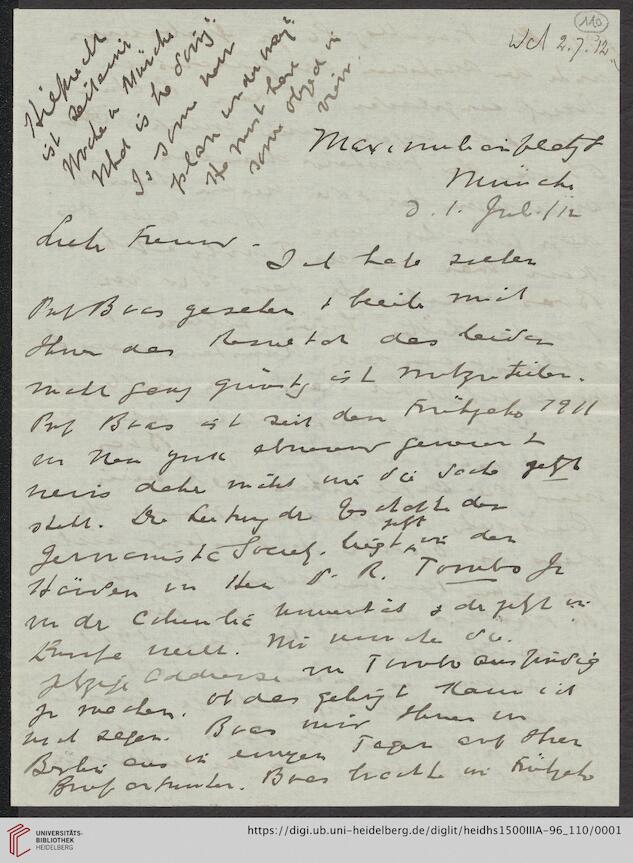 110
Wd 2.7.12.
Hilprecht
ist seit einer
Woche in München
What is he doing?
Is some new
plan under way?
He must have
some object in
view.
Maximiliansplatz 8
München
d. 1. Juli /12
Lieber Freund -
Ich habe soeben
Prof Boas gesehen & beeile mich
Ihnen das Resultat das leider
nicht ganz günstig ist mitzuteilen.
Prof Boas ist seit dem Frühjahr 1911
in New York abwesend gewesen &
weiss daher nicht wie die Sache jetzt
steht. Die Leitung der Geschäfte der
Germanistic Society liegt jetzt in den
Händen von Herr Dr. R. Tombo Jr
von der Columbia Universität & der jetzt in
Europa weilt. Wir versuchen die
jetzige Addresse von Tombo ausfindig
zu machen. Ob das gelingt kann ich
nicht sagen. Boas wird Ihnen von
Berlin aus in einigen Tagen auf Ihren
Brief antworten. Boas dachte im Frühjahr
UNIVERSITÄTS-
BIBLIOTHEK
HEIDELBERG
https://digi.ub.uni-heidelberg.de/diglit/heidhs1500IIIA-96_110/0001